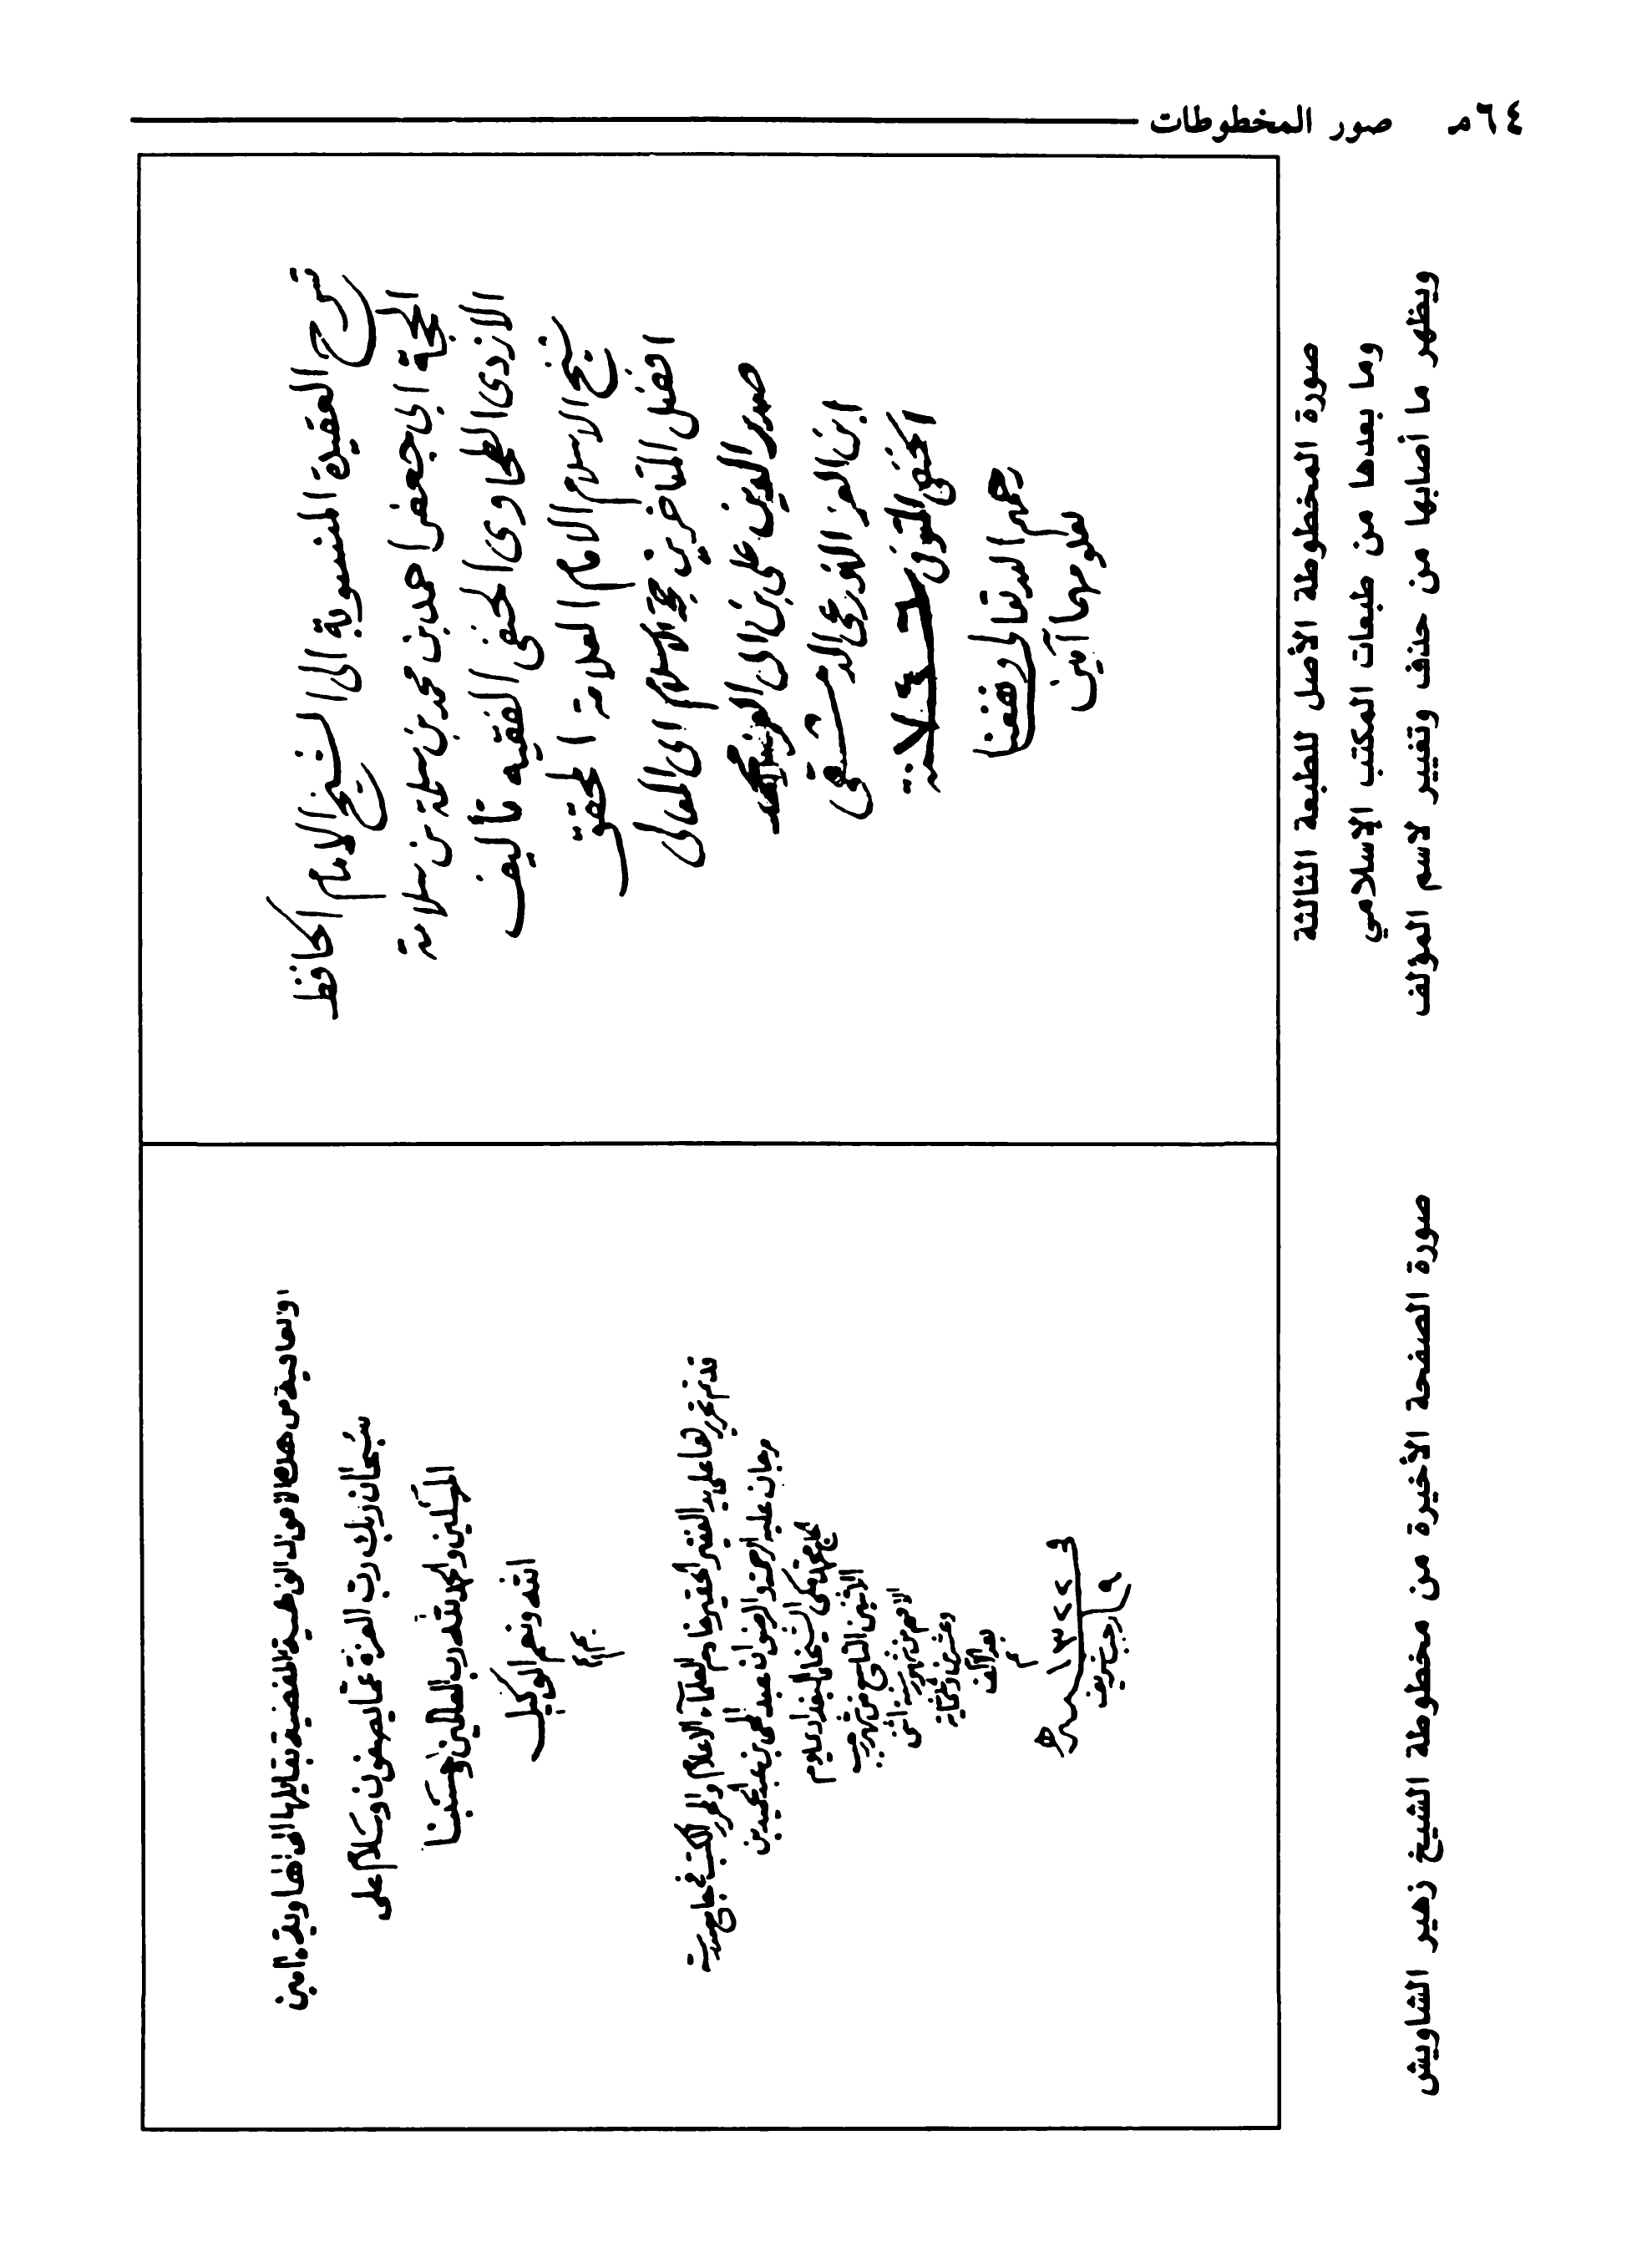 ٦٤م صور المخطوطات
شرح العقيدة المنسوبة الى الشيخ الامام الحافظ
الحجة ابى جعفر احمد بن محمد بن سلمة بن سلامة
الازدى الطحاوى الحنفى الفقيه تأليف
شيخ الاسلام الامام العلامة المحقق
افضل المتاخرين حجة الاسلام ابى المعالى
صدر الدين على بن ابى العز محمد
ابن العز الاذرعى الدمشقى
الحنفى المتوفى سنة
رحمهم الله تعالى ونفعنا
بعلومهما آمين
صورة المخطوطة الأصل للطبعة الثالثة
وما بعدها من طبعات المكتب الإسلامي
ويظهر ما أصابها من حذف وتغيير لاسم المؤلف
والعافية من هذه الاهوال المفضية بقايلها الى الهاوية، امين
سبحان ربك رب العزة عما يصفون وسلام على
المرسلين والحمد لله رب العالمين وحسبنا
الله ونعم الوكيل
قد تم تحريرها على يد الفقير الحقير خادم العلماء الاعلام والمحرر الكتب في جامع مدرسة
مرجان عليه الرحمة والرضوان عبد الحى بن عبد الحميد بن
الحاج محمد مكى الشيخلى البغدادى يوم
الاثنين التاسع من شهر رجب
الاصم من شهور سنة اثنى
وعشرين وثلثمائة
بعد الالف
م
في ١٣٢٢ سنة هـ
٩ رجب شريف
صورة الصفحة الأخيرة من مخطوطة الشيخ زهير الشاويش